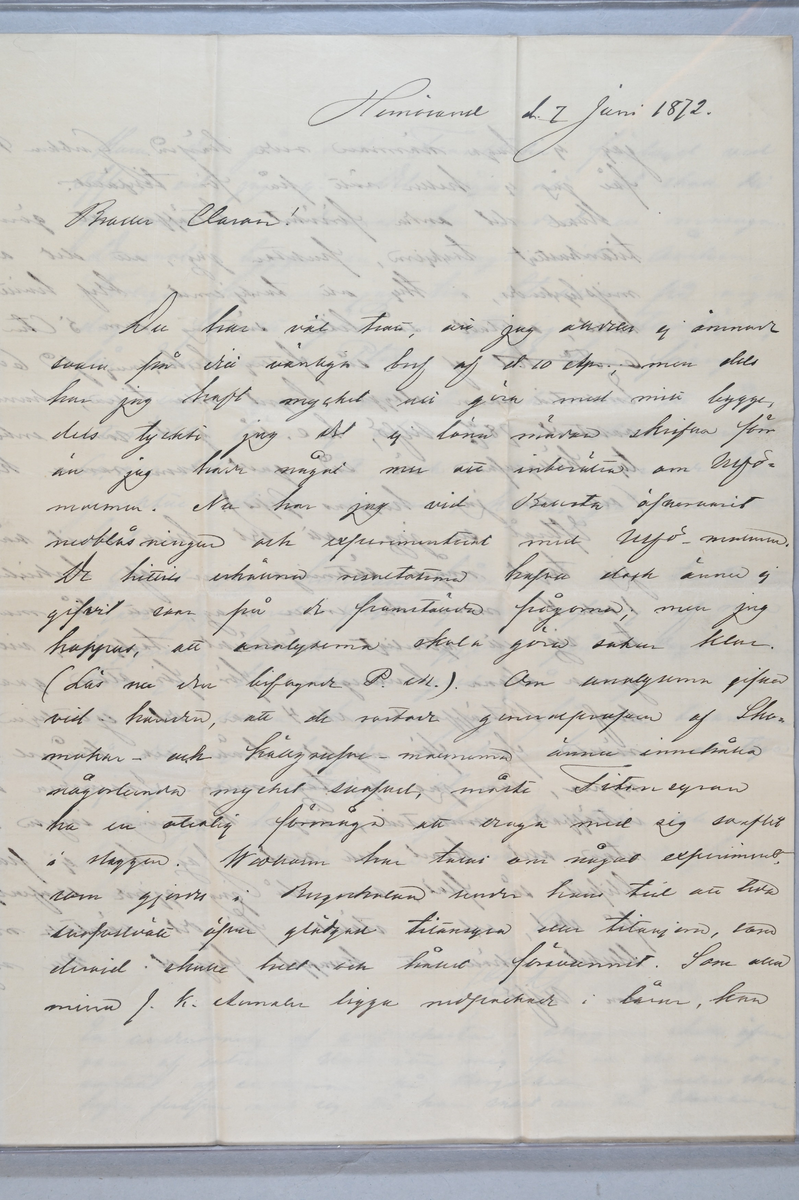 Hernösand d. 7 Juni 1872.
Broder Clarson!
Du har väl trott, att jag aldrig ej ämnade
svara på ditt vänliga bref af d. 10 Apr., men dels
har jag haft mycket att göra med mitt bygge,
dels tyckte jag det ej löna mödan skrifva för
än jag hade något mer att inberätta om Ulfö-
malmen. Nu har jag vid öfvervarit
nedblåsningen och experimenterat med Ulfö-malmen.
De hittills erhållna resultaterna hafva dock ännu ej
gifvit svar på de framställda frågorna; men jag
hoppas, att analyserna skola göra saken klar.
(Läs nu den bifogade P. M.). Om analyserna gifva
vid handen, att de rostade generalprofven af Sko-
makar- och Kålgrufve-malmerna ännu innehålla
någorlunda mycket svafvel, måste Titansyran
ha en otrolig förmåga att draga med sig svaflet
i slaggen. har talat om något experiment,
som gjordes i Bergsskolan under hans tid att leda
öfver glödgad titansyra eller titanjern, som
dervid skulle helt och hållet försvunnit. Som alla
mina J. K. Annaler ligga nedpackade i lårar, kan